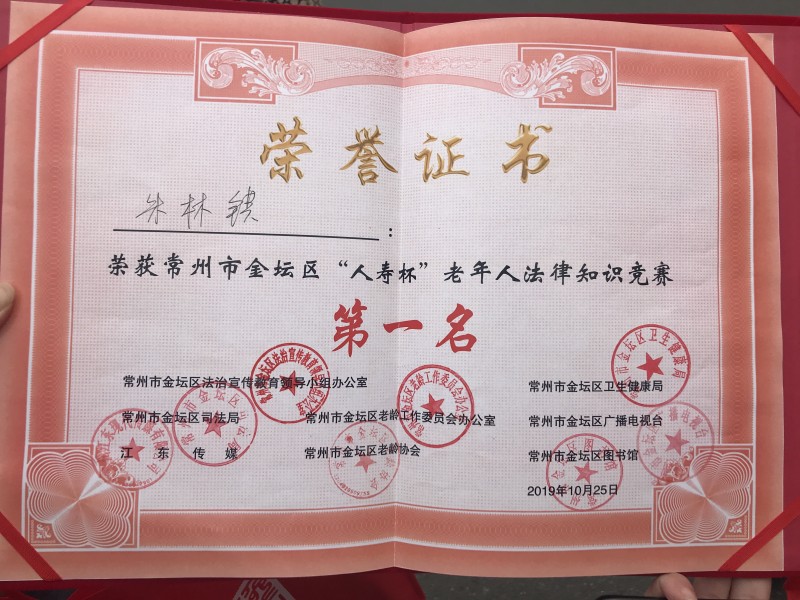 荣誉证书
朱林锁：
荣获常州市金坛区“人寿杯”老年人法律知识竞赛
第一名
常州市金坛区法治宣传教育领导小组办公室
常州市金坛区卫生健康局
常州市金坛区司法局
常州市金坛区老龄工作委员会办公室
常州市金坛区广播电视台
江东传媒
常州市金坛区老龄协会
常州市金坛区图书馆
2019年10月25日